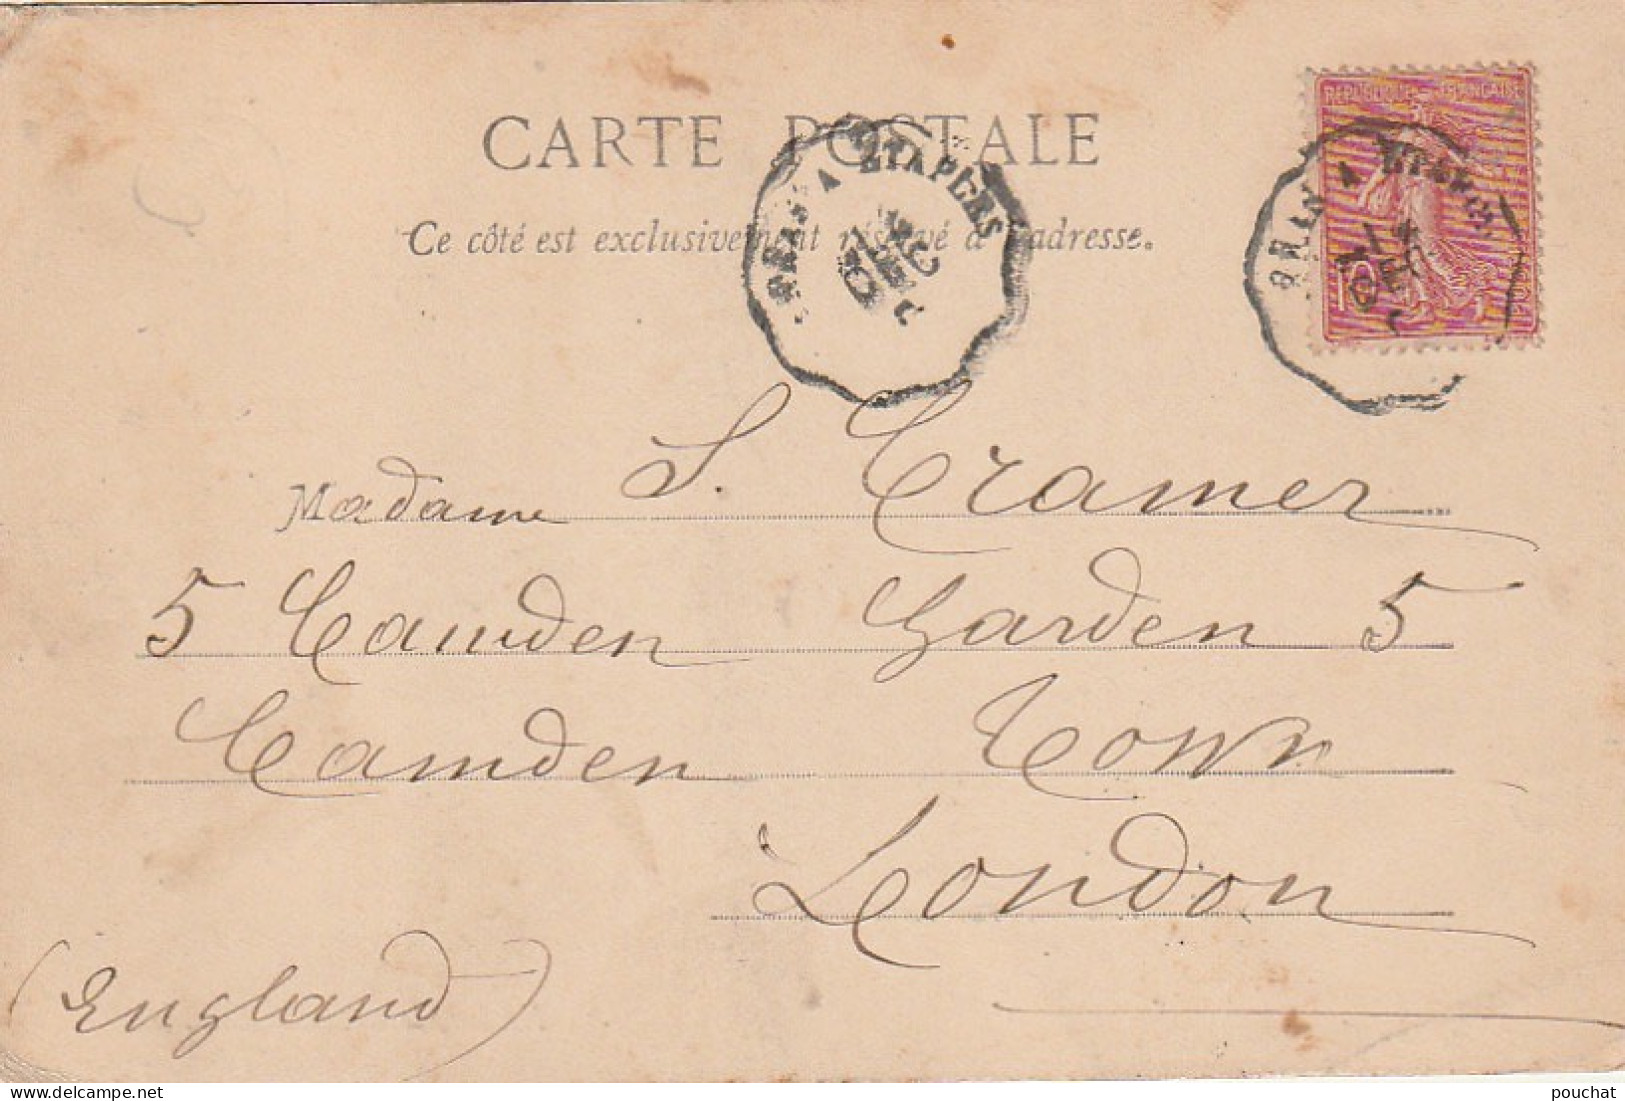 CARTE POSTALE
Ce côté est exclusivement réservé à l'adresse.
REPUBLIQUE FRANÇAISE
10
A ETAPLES
Madame S. Cramer
5 Camden Garden 5
Camden Town
London
(England)
pouchat